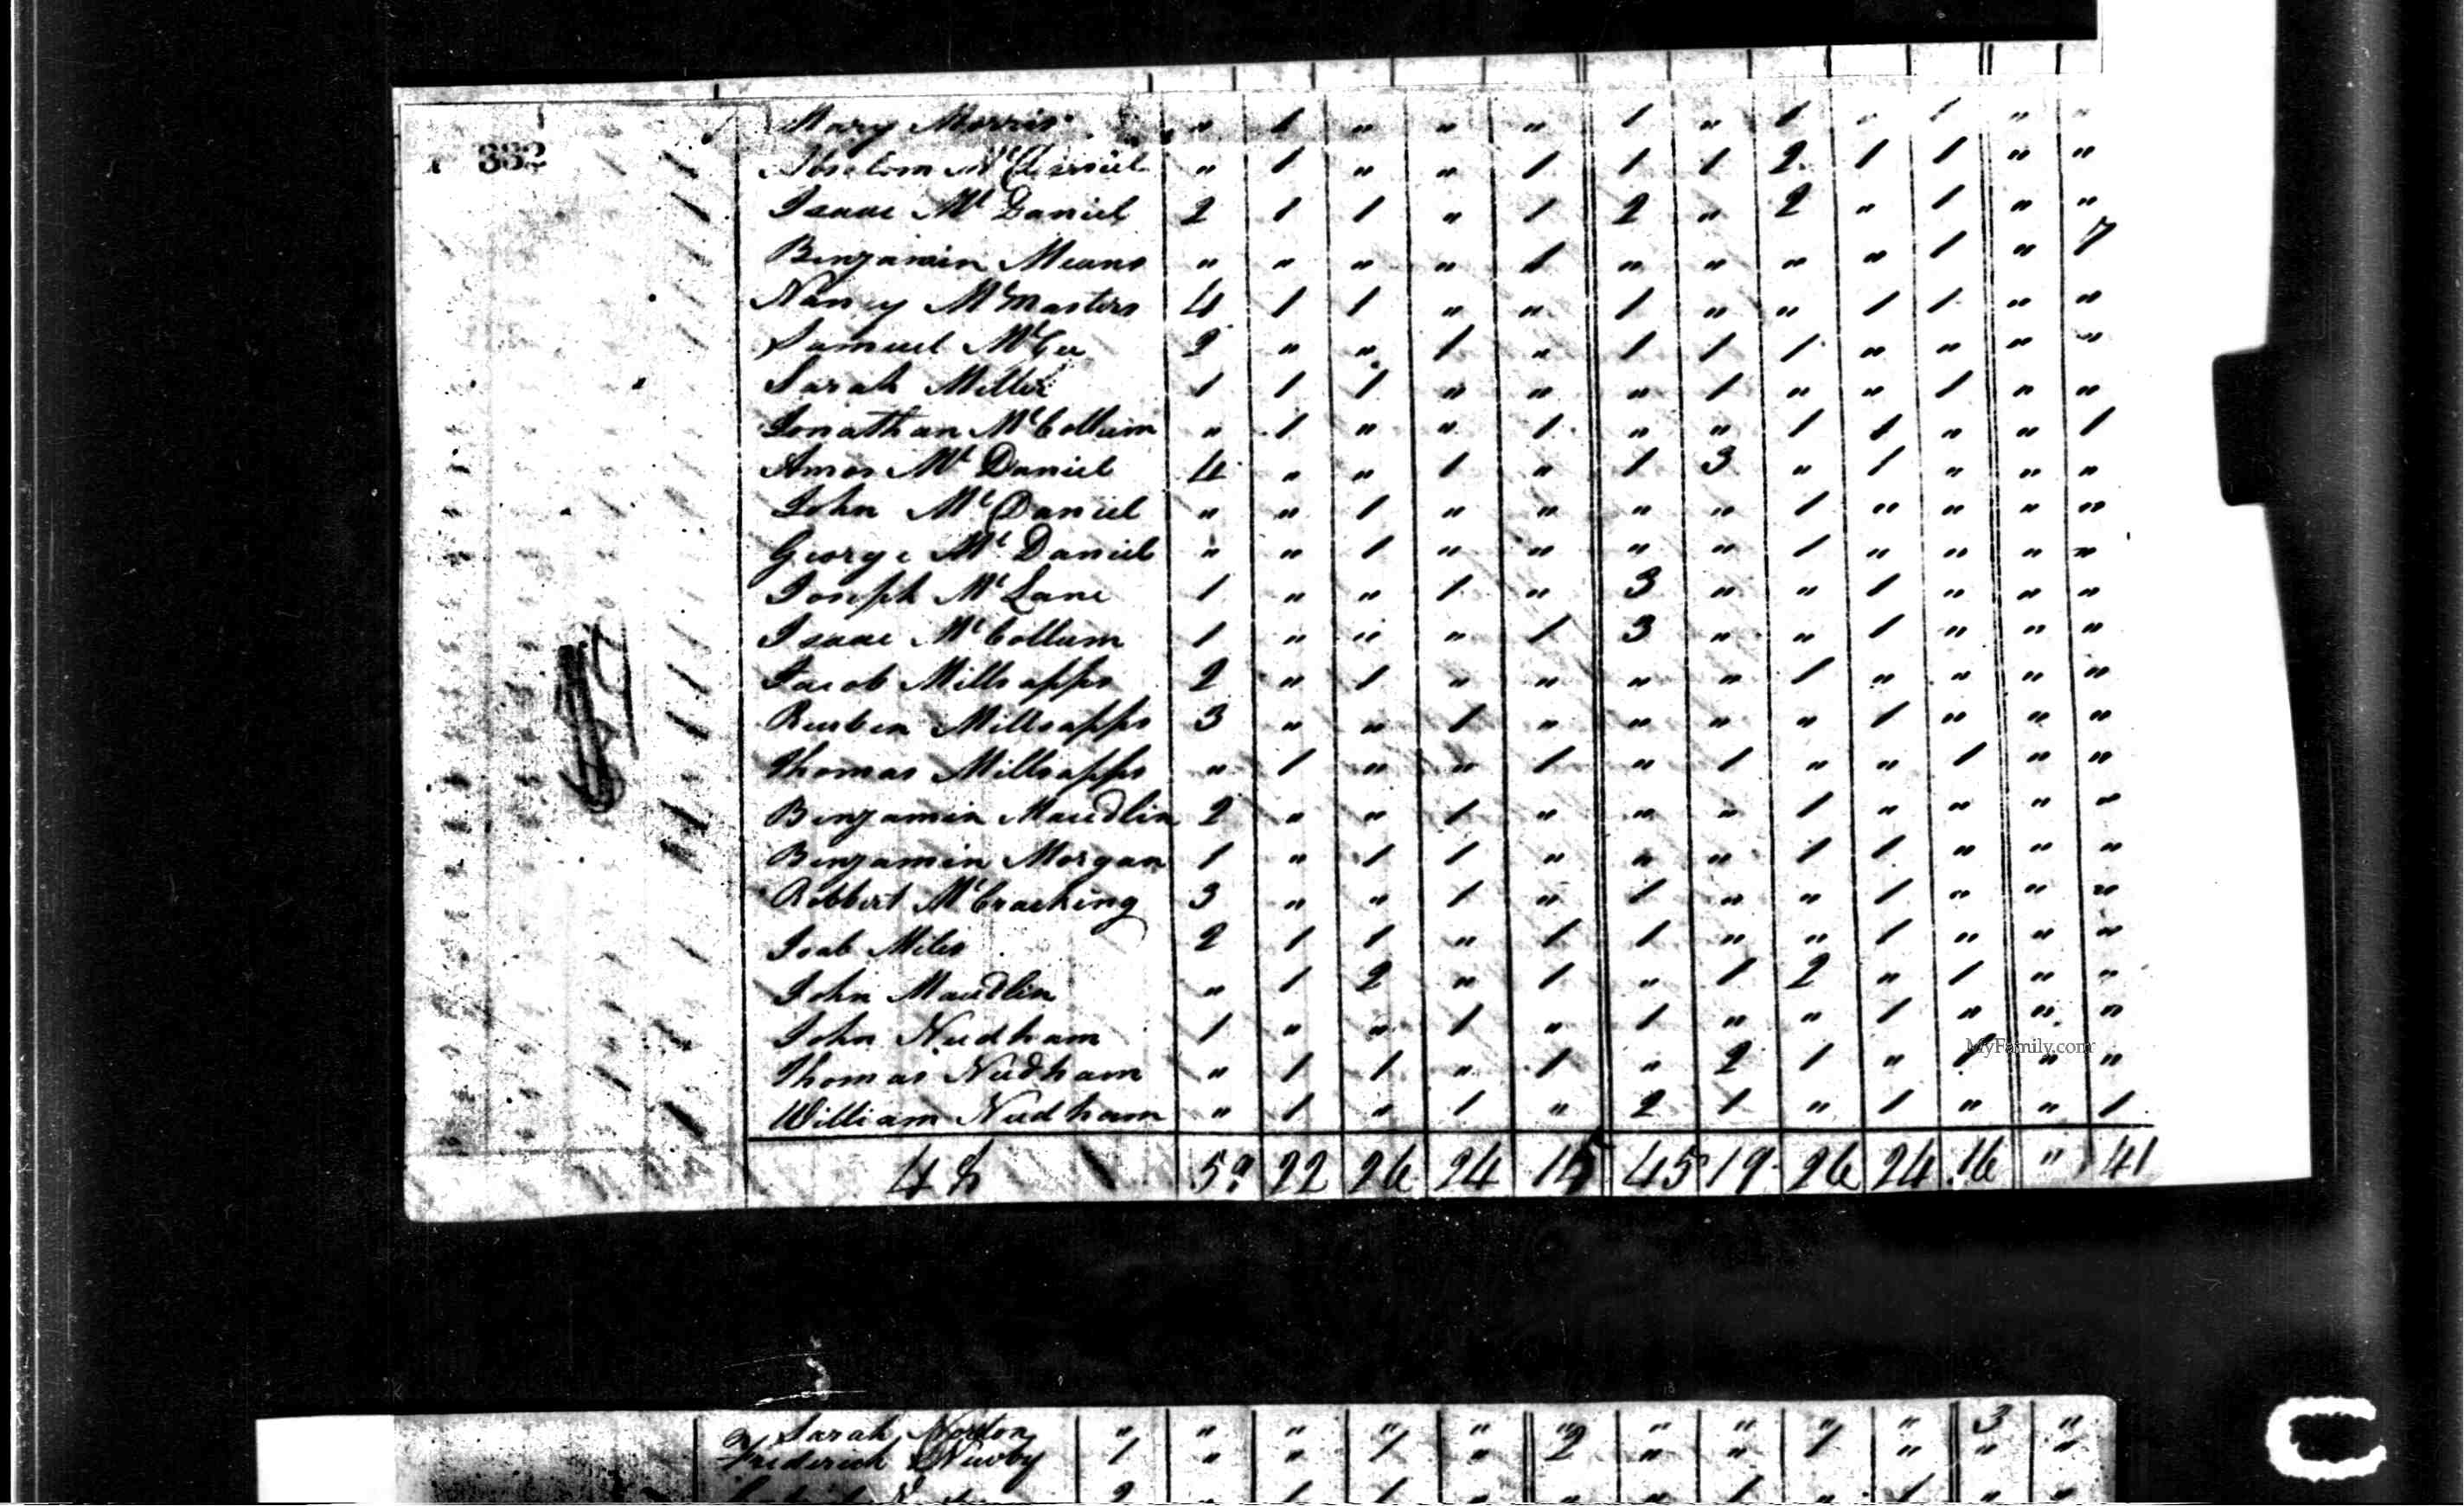 332
Mary Morris " 1 " " " 1 " 1 " 1 " "
Absolom Mc Daniel " 1 " " 1 1 1 2 1 1 " "
Isaac Mc Daniel 2 1 1 " 1 2 " 2 " 1 " "
Benjamin Means " " " " 1 " " " " 1 " 7
Nancy McMasters 4 1 1 " " 1 " " 1 1 " "
Samuel McGee 2 " " 1 " 1 1 1 " " " "
Sarah Miller 1 1 1 " " " 1 " " 1 " "
Jonathan McCollum " 1 " " 1 " " 1 1 " " 1
Amos Mc Daniel 4 " " 1 " 1 3 " 1 " " "
John Mc Daniel " " 1 " " " " 1 " " " "
George Mc Daniel " " 1 " " " " 1 " " " "
Joseph Mc Lane 1 " " 1 " 3 " " 1 " " "
Isaac McCollum 1 " " " 1 3 " " 1 " " "
Jacob Millsapps 2 " 1 " " " " 1 " " " "
Reuben Millsapps 3 " " 1 " " " " 1 " " "
Thomas Millsapps " 1 " " 1 " 1 " " 1 " "
Benjamin Maudlin 2 " " 1 " " " 1 " " " "
Benjamin Morgan 1 " 1 1 " " " 1 1 " " "
Robbert McCracking 3 " " 1 " 1 " " 1 " " "
Joab Miles 2 1 1 " 1 1 " " 1 " " "
John Maudlin " 1 2 " 1 " 1 2 " 1 " "
John Needham 1 " " 1 " 1 " " 1 " " "
Thomas Needham " 1 1 " 1 " 2 1 " 1 " "
William Needham " 1 " 1 " 2 1 " 1 " " 1
22 26 24 15 45 19 26 24 16 " 41
MyFamily.com
Sarah Norton " " " 1 " 2 " " 1 " 3 "
Frederick Newby 1 " " 1 " 2 " " 1 " " "
C